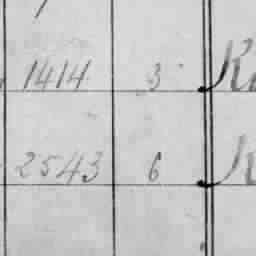 1414 3
2543 6